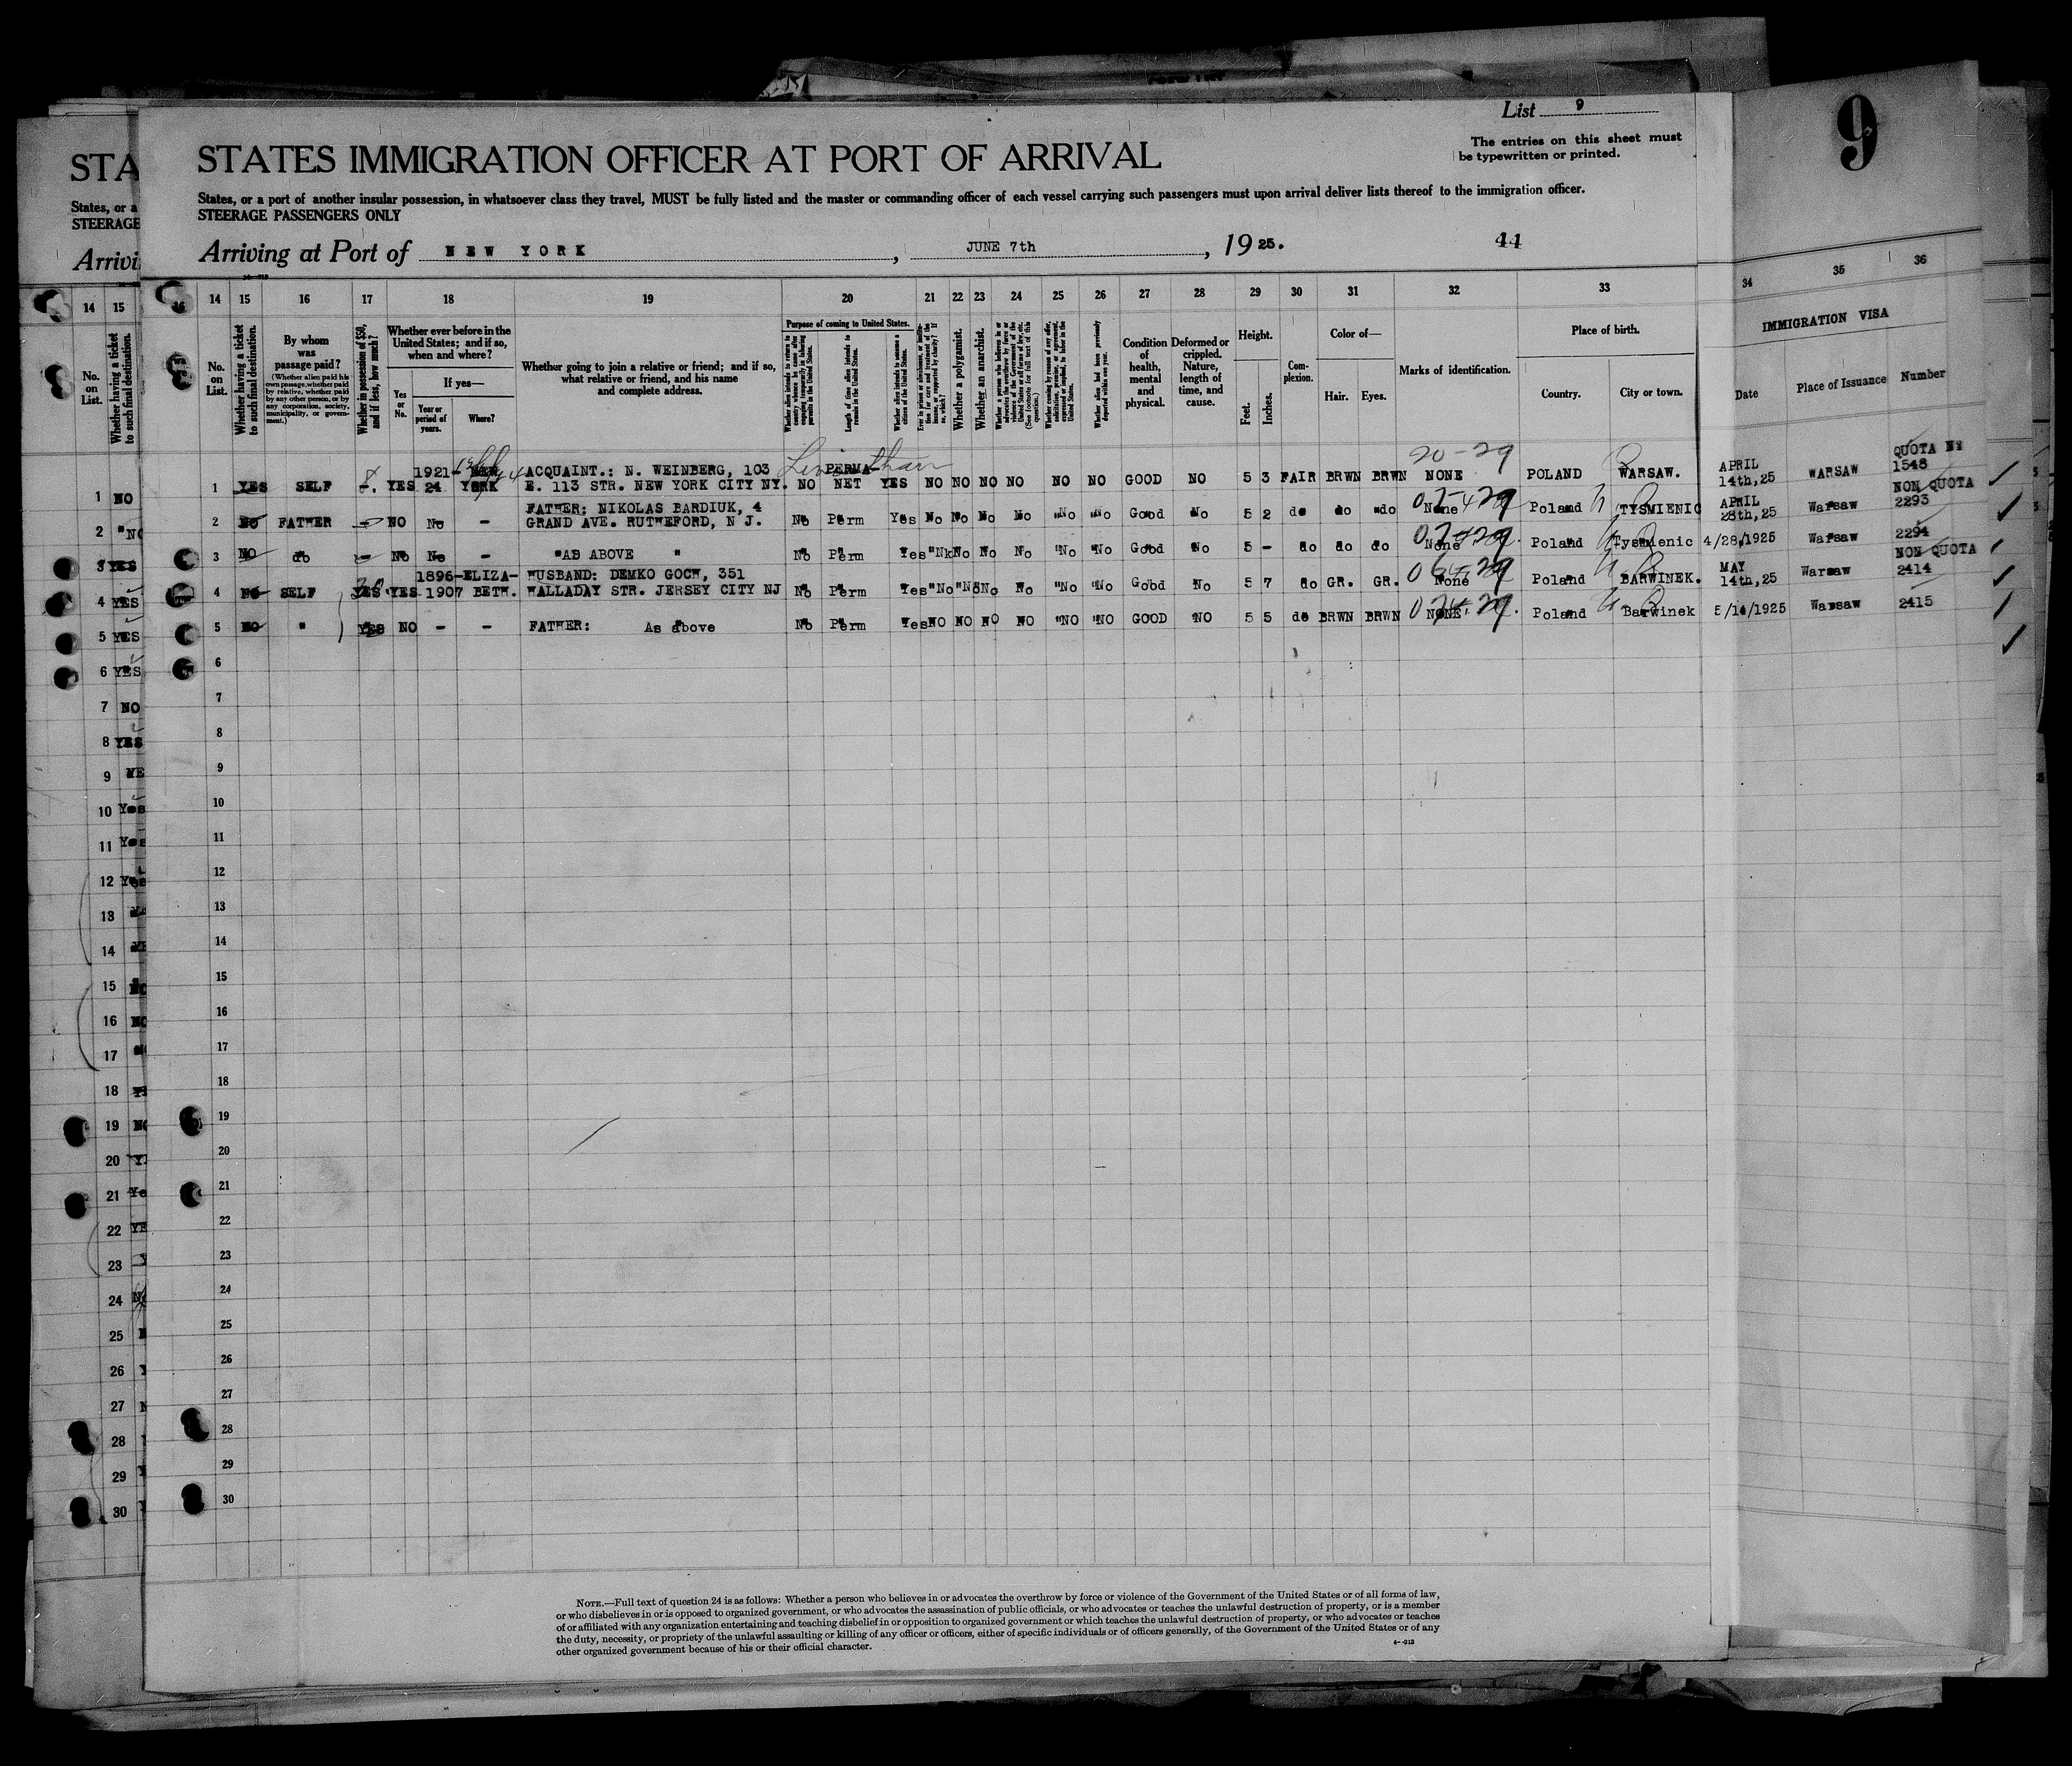 List 9
The entries on this sheet must
be typewritten or printed.
9
STATES IMMIGRATION OFFICER AT PORT OF ARRIVAL
States, or a port of another insular possession, in whatsoever class they travel, MUST be fully listed and the master or commanding officer of each vessel carrying such passengers must upon arrival deliver lists thereof to the immigration officer.
STEERAGE PASSENGERS ONLY
Arriving at Port of NEW YORK, JUNE 7th, 1925.
44
14 15 16 17 18 19 20 21 22 23 24 25 26 27 28 29 30 31 32 33 34 35 36
No. on List.
Whether having a ticket to such final destination.
By whom was passage paid?
(Whether alien paid his own passage, whether paid by relative, whether paid by any other person, or by any corporation, society, municipality, or government.)
Whether in possession of $50, and if less, how much?
Whether ever before in the United States; and if so, when and where?
Yes or No.
If yes—
Year or period of years.
Where?
Whether going to join a relative or friend; and if so, what relative or friend, and his name and complete address.
Purpose of coming to United States.
Whether alien intends to return to country whence he came after engaging temporarily in laboring pursuits in the United States.
Length of time alien intends to remain in the United States.
Whether alien intends to become a citizen of the United States.
Whether a polygamist.
Whether an anarchist.
Whether alien had been previously deported within one year.
Condition of health, mental and physical.
Deformed or crippled. Nature, length of time, and cause.
Height.
Feet.
Inches.
Complexion.
Color of—
Hair.
Eyes.
Marks of identification.
Place of birth.
Country.
City or town.
IMMIGRATION VISA
Date
Place of Issuance
Number
Leviathan
20-29
1921- NEW ACQUAINT.: N. WEINBERG, 103 PERMA- APRIL QUOTA No
1 YES SELF -. YES 24 YORK E. 113 STR. NEW YORK CITY NY. NO NET YES NO NO NO NO NO NO GOOD NO 5 3 FAIR BRWN BRWN NONE POLAND WARSAW. 14th,25 WARSAW 1548
FATHER: NIKOLAS BARDIUK, 4 APRIL NON QUOTA
2 NO FATHER - NO No - GRAND AVE. RUTHEFORD, N J. No Perm Yes No No No No "No "No Good No 5 2 do do do None Poland TYSMIENIC 28th,25 Warsaw 2293
3 NO do - No No - "AS ABOVE " No Perm Yes No No No No "No "No Good No 5 - do do do None Poland Tysmienic 4/28/1925 Warsaw 2294
1896-ELIZA- HUSBAND: DEMKO GOCH, 351 MAY NON QUOTA
4 NO SELF YES YES 1907 BETH. HALLADAY STR. JERSEY CITY NJ No Perm Yes "No "No No No "No "No Good No 5 7 do GR. GR. None Poland BARWINEK. 14th,25 Warsaw 2414
5 NO " YES NO - - FATHER: As above No Perm Yes NO NO NO NO "NO "NO GOOD NO 5 5 do BRWN BRWN NONE Poland Barwinek 5/14/1925 Warsaw 2415
6
7
8
9
10
11
12
13
14
15
16
17
18
19
20
21
22
23
24
25
26
27
28
29
30
NOTE.—Full text of question 24 is as follows: Whether a person who believes in or advocates the overthrow by force or violence of the Government of the United States or of all forms of law,
or who disbelieves in or is opposed to organized government, or who advocates the assassination of public officials, or who advocates or teaches the unlawful destruction of property, or is a member
of or affiliated with any organization entertaining and teaching disbelief in or opposition to organized government or which teaches the unlawful destruction of property, or who advocates or teaches
the duty, necessity, or propriety of the unlawful assaulting or killing of any officer or officers, either of specific individuals or of officers generally, of the Government of the United States or of any
other organized government because of his or their official character.